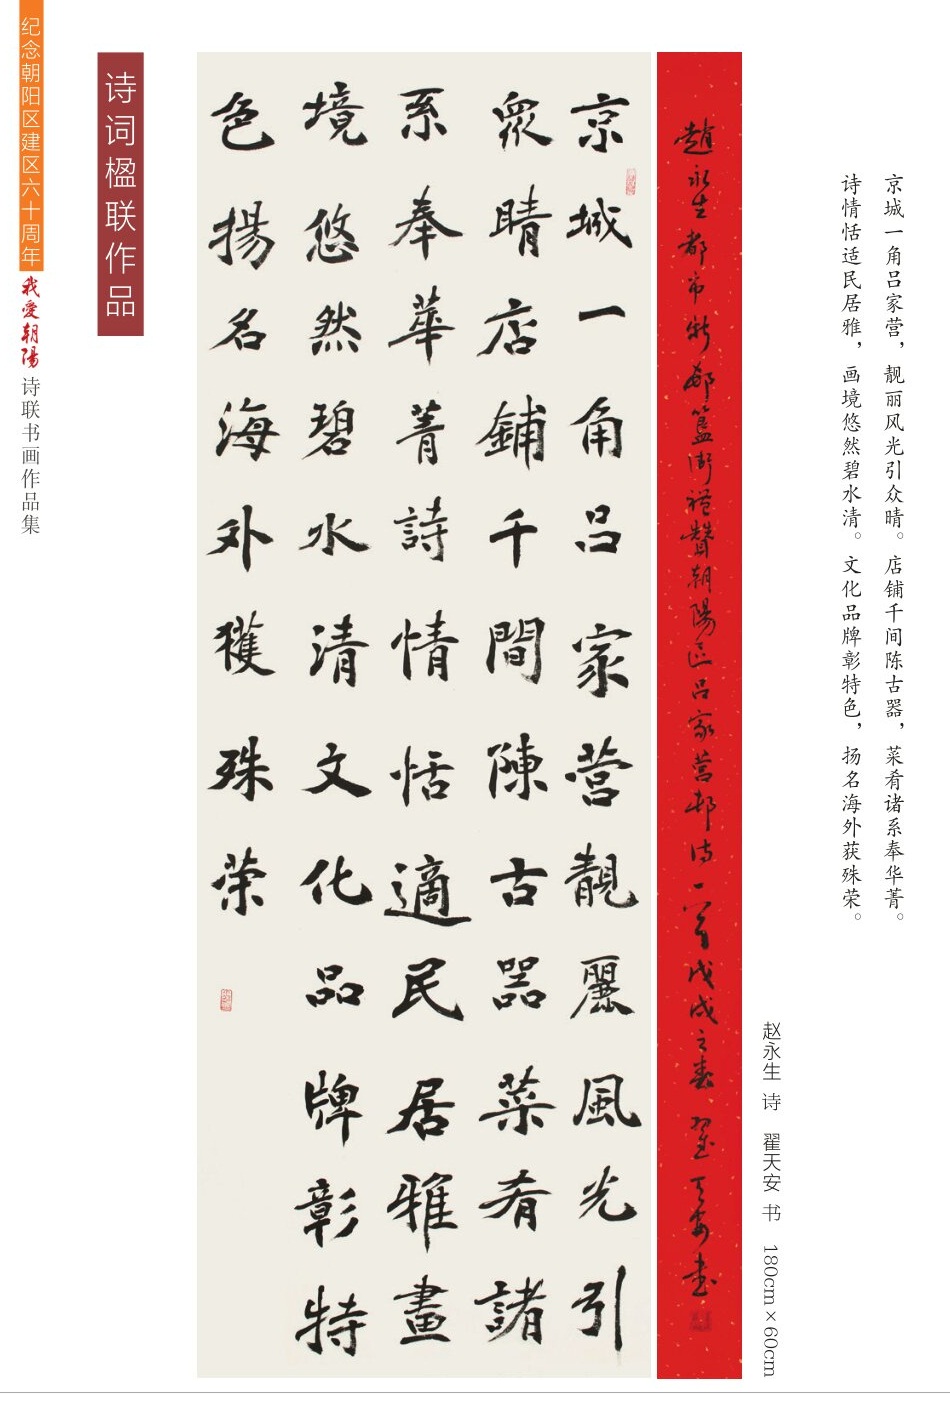 纪念朝阳区建区六十周年我爱朝陽诗联书画作品集
诗词楹联作品
京城一角吕家营，靓丽风光引众晴。店铺千间陈古器，菜肴诸系奉华菁。
诗情恬适民居雅，画境悠然碧水清。文化品牌彰特色，扬名海外获殊荣。
赵永生 诗 翟天安 书 180cm×60cm
趙永生都市新邨籃街禮贊朝陽區吕家营邨诗一首戊戌之春翟天安書
京城一角吕家营靚麗風光引
衆晴店鋪千間陳古器菜肴諸
系奉華菁詩情恬適民居雅畫
境悠然碧水清文化品牌彰特
色揚名海外獲殊荣